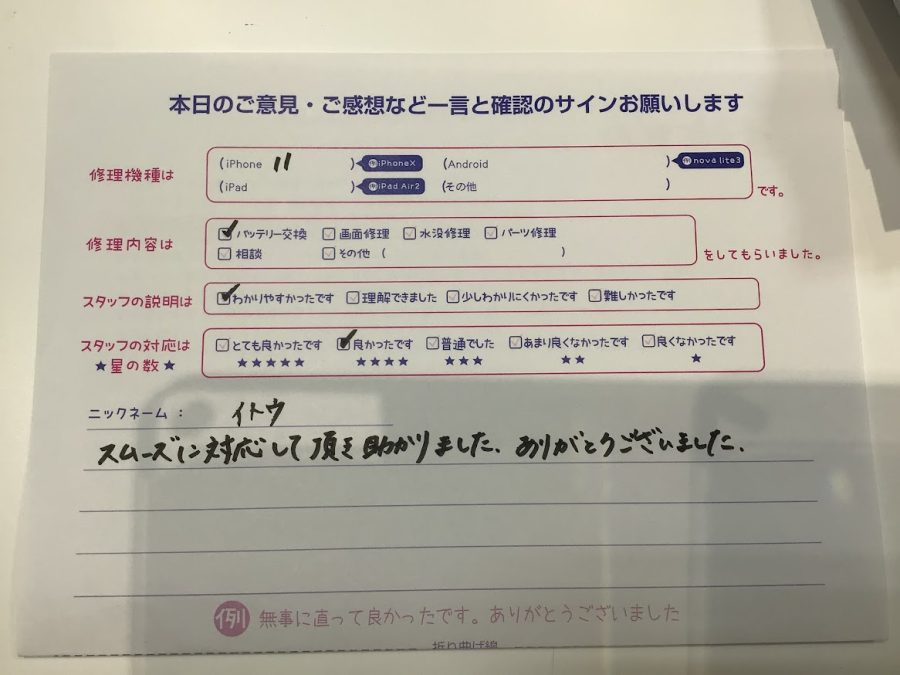 本日のご意見・ご感想など一言と確認のサインお願いします
修理機種は (iPhone 11 ) iPhoneX (Android ) nova lite3
(iPad ) iPad Air2 (その他 ) です。
修理内容は ☑バッテリー交換 ☐画面修理 ☐水没修理 ☐パーツ修理
☐相談 ☐その他 ( ) をしてもらいました。
スタッフの説明は ☑わかりやすかったです ☐理解できました ☐少しわかりにくかったです ☐難しかったです
スタッフの対応は ☐とても良かったです ☑良かったです ☐普通でした ☐あまり良くなかったです ☐良くなかったです
★星の数★ ★★★★★ ★★★★ ★★★ ★★ ★
ニックネーム: イトウ
スムーズに対応して頂き助かりました、ありがとうございました、
例 無事に直って良かったです。ありがとうございました
折り曲げ線